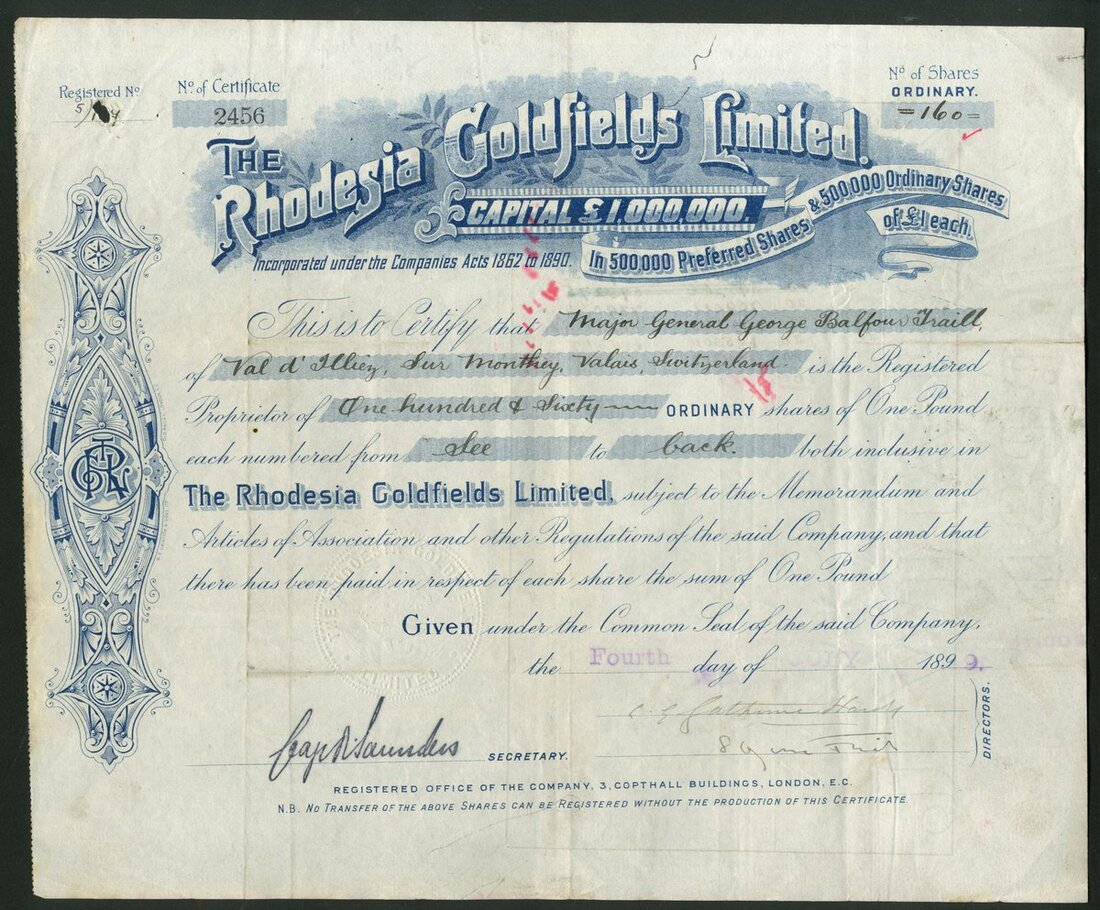 Registered No
No of Certificate
2456
No of Shares
ORDINARY.
=160=
THE
Rhodesia Goldfields Limited.
CAPITAL £1,000,000.
In 500000 Preferred Shares & 500,000 Ordinary Shares
of £1 each.
Incorporated under the Companies Acts 1862 to 1890.
This is to Certify that Major General George Balfour Traill,
of Val d' Illiez, Sur Monthey, Valais, Switzerland. is the Registered
Proprietor of One hundred & Sixty ORDINARY shares of One Pound
each numbered from See to back. both inclusive in
The Rhodesia Goldfields Limited, subject to the Memorandum and
Articles of Association and other Regulations of the said Company, and that
there has been paid in respect of each share the sum of One Pound
Given under the Common Seal of the said Company,
the Fourth day of JULY 1899.
Saunders SECRETARY.
DIRECTORS.
REGISTERED OFFICE OF THE COMPANY, 3, COPTHALL BUILDINGS, LONDON, E.C.
N.B. NO TRANSFER OF THE ABOVE SHARES CAN BE REGISTERED WITHOUT THE PRODUCTION OF THIS CERTIFICATE.